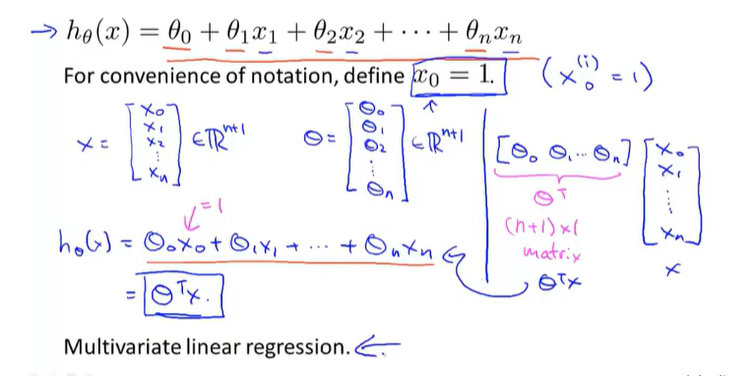 → hθ(x) = θ0 + θ1x1 + θ2x2 + ··· + θnxn
For convenience of notation, define x0 = 1. (x0^(i) = 1)
x = [x0 x1 x2 ⋮ xn] ∈ ℝ^(n+1) θ = [θ0 θ1 θ2 ⋮ θn] ∈ ℝ^(n+1)
[θ0 θ1 ... θn] [x0 x1 ⋮ xn]
θ^T
(n+1) x 1
matrix
x
θ^T x
= 1
hθ(x) = θ0x0 + θ1x1 + ··· + θnxn
= θ^T x.
Multivariate linear regression. ←